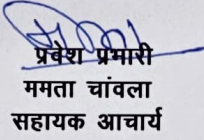 प्रवेश प्रभारी
ममता चांवला
सहायक आचार्य